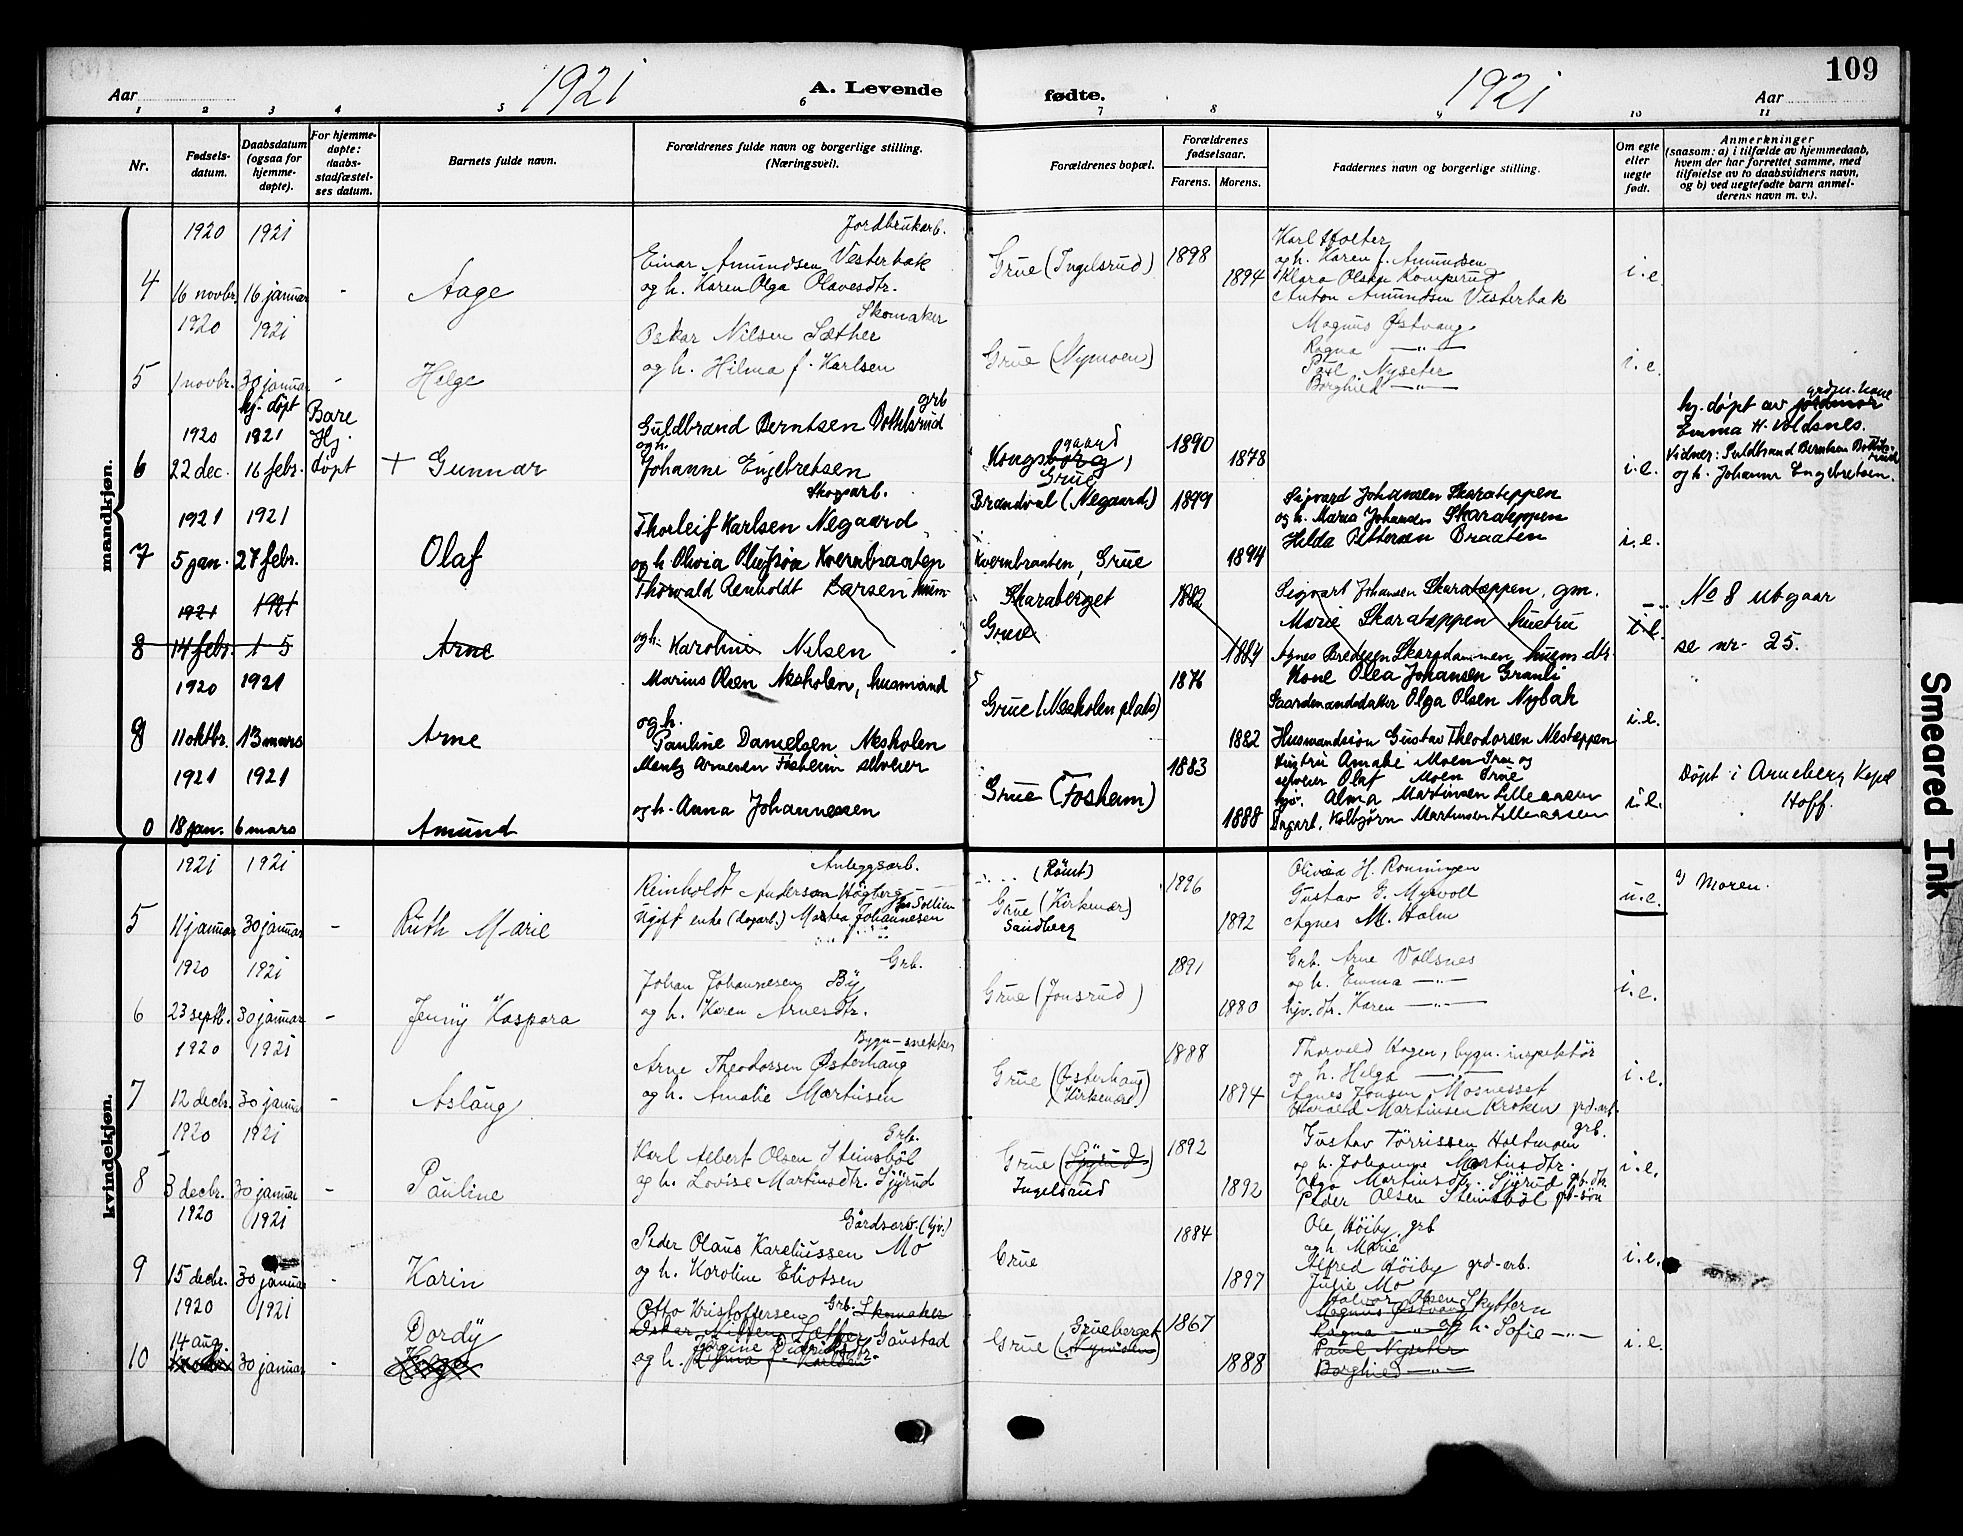 109
Aar 1921 A. Levende fødte. 1921 Aar
1 2 3 4 5 6 7 8 9 10 11
Nr.
Fødsels-
datum.
Daabsdatum
(ogsaa for
hjemme-
døpte).
For hjemme-
døpte:
daabs-
stadfæstel-
ses datum.
Barnets fulde navn.
Forældrenes fulde navn og borgerlige stilling.
(Næringsvei).
Forældrenes bopæl.
Forældrenes
fødselsaar.
Farens. Morens.
Faddernes navn og borgerlige stilling.
Om egte
eller
uegte
født.
Anmerkninger
(saasom: a) i tilfælde av hjemmedaab,
hvem der har forrettet samme, med
tilføielse av to daabsvidners navn,
og b) ved uegtefødte barn anmel-
derens navn m. v.).
mandkjøn.
4
1920
16 novbr.
1921
16 januar
-
Aage
Jordbrukarb.
Einar Amundsen Vesterbak
og h. Karen Olga Olavesdtr.
Grue (Ingelsrud)
1898
1894
Karl Holter
og h. Karen f. Amundsen
Klara Olsen Komperud
Anton Amundsen Vesterbak
i.e.
5
1920
1 novbr.
1921
30 januar
-
Helge
Skomaker
Oskar Nilsen Sæther
og h. Hilma f. Karlsen
Grue (Nymoen)
Magnus Østvang
Ragna —"—
Paul Nyseter
Borghild —"—
i.e.
6
1920
22 dec.
hj. døpt
1921
16 febr.
Bare
Hj.
døpt
+ Gunnar
grb
Guldbrand Berntsen Botilsrud
og h.
Johanne Engebretsen
gaard
Kongsborg,
Grue
1890
1878
i.e.
hj. døpt av jordmor
Emma H. Voldsnes.
Vidner: Guldbrand Berntsen Botilsrud
og h. Johanne Engebretsen.
7
1921
5 jan.
1921
27 febr.
Olaf
Skogsarb.
Thorleif Karlsen Negaard
og h. Olivia Kvernbraaten
Brandval (Negaard)
Kvernbraaten, Grue
1899
1894
Sigvard Johansen Skaratæppen
og h. Maria Johansen Skaratæppen
Hilda Pettersen Braaten
i.e.
8
1921
14 febr.
1921
1 5
Arne
Thorvald Renholdt Larsen husm.
og h. Karoline Nilsen
Skaraberget
Grue
1882
1884
Sigvart Johansen Skaratæppen, gm.
Marie Skaratæppen hustru
Agnes Bredesen Skarsdammen husm. dtr.
i.e.
No 8 utgaar
se nr. 25.
9
1920
11 oktbr.
1921
13 mars
Arne
Marius Olsen Nesholen, husmand
og h.
Pauline Danielsen Nesholen
Grue (Nesholen plads)
1876
1882
Kone Olea Johansen Granli
Gaardmandsdatter Olga Olsen Nybak
Husmandssøn Gustav Theodorsen Nestæppen
i.e.
0
1921
18 jan.
1921
6 mars
Amund
Mentz Arnesen Fosheim selveier
og h. Anna Johannessen
Grue (Fosheim)
1883
1888
Hustru Amalie Moen Grue og
selveier Olaf Moen Grue
hjv. Alma Martinsen Lilleaasen
Dagarb. Kolbjørn Martinsen Lilleaasen
i.e.
Døpt i Arneberg Kapel
Hoff.
kvindekjøn.
5
1921
11 januar
1921
30 januar
-
Ruth Marie
Anleggsarb.
Reinholdt Anderson Høgberg
Ugift enke (dagarb.) Martea Johannesen
(Rømt)
Grue (Kirkenær)
Sandberg
1896
1892
Olivia H. Rønningen
Gustav G. Myrvold
Agnes M. Holm
u.e.
Moren.
6
1920
23 septb.
1921
30 januar
-
Jenny Kaspara
Grb.
Johan Johannesen By
og h. Karen Arnesdtr.
Grue (Jonsrud)
1891
1880
Grb. Arne Vollsnes
og h. Emma —"—
hjv. dtr. Karen —"—
i.e.
7
1920
12 decbr.
1921
30 januar
-
Aslaug
Bygn-snekker
Arne Theodorsen Østerhaug
og h. Amalie Martinsen
Grue (Østerhaug
Kirkenær)
1888
1894
Thorvald Hagen, bygn. inspektør
og h. Helga —
Agnes Jonsen Mosnesset
Harald Martinsen Kroken grd-arb.
i.e.
8
1920
3 decbr.
1921
30 januar
-
Pauline
Grb.
Karl Albert Olsen Steinsbøl
og h. Lovise Martinsdtr. Sjyrud
Grue (Sjyrud)
Ingelsrud
1892
1892
grb.
Gustav Tørrissen Holtmoen
og h. Johanne Martinsdtr.
Olga Martinsdtr. Sjyrud grb. dtr.
Peder Olsen Steinsbøl grb-søn
i.e.
9
1920
15 decbr.
1921
30 januar
-
Karin
Gårdsarb. (hjv.)
Peder Olaus Kareliussen Mo
og h. Karoline Eliotsen
Grue
1884
1897
Ole Høiby, grb
og h. Marie
Alfred Høiby grd-arb.
Julie Mo
i.e.
10
1920
14 aug.
1921
30 januar
Dordy
Helge
Otto Kristoffersen Grb. Skomaker
Oskar Nilsen Sæther Gaustad
og h. Jørgine Didriksdtr.
Hilma f. Karlsen
Grueberget
Grue (Nymoen)
1867
1888
Halvor Olsen Skyttern
Magnus Østvang
Ragna —"— og h. Sofie —"—
Paul Nyseter
Borghild —"—
i.e.
Smeared Ink